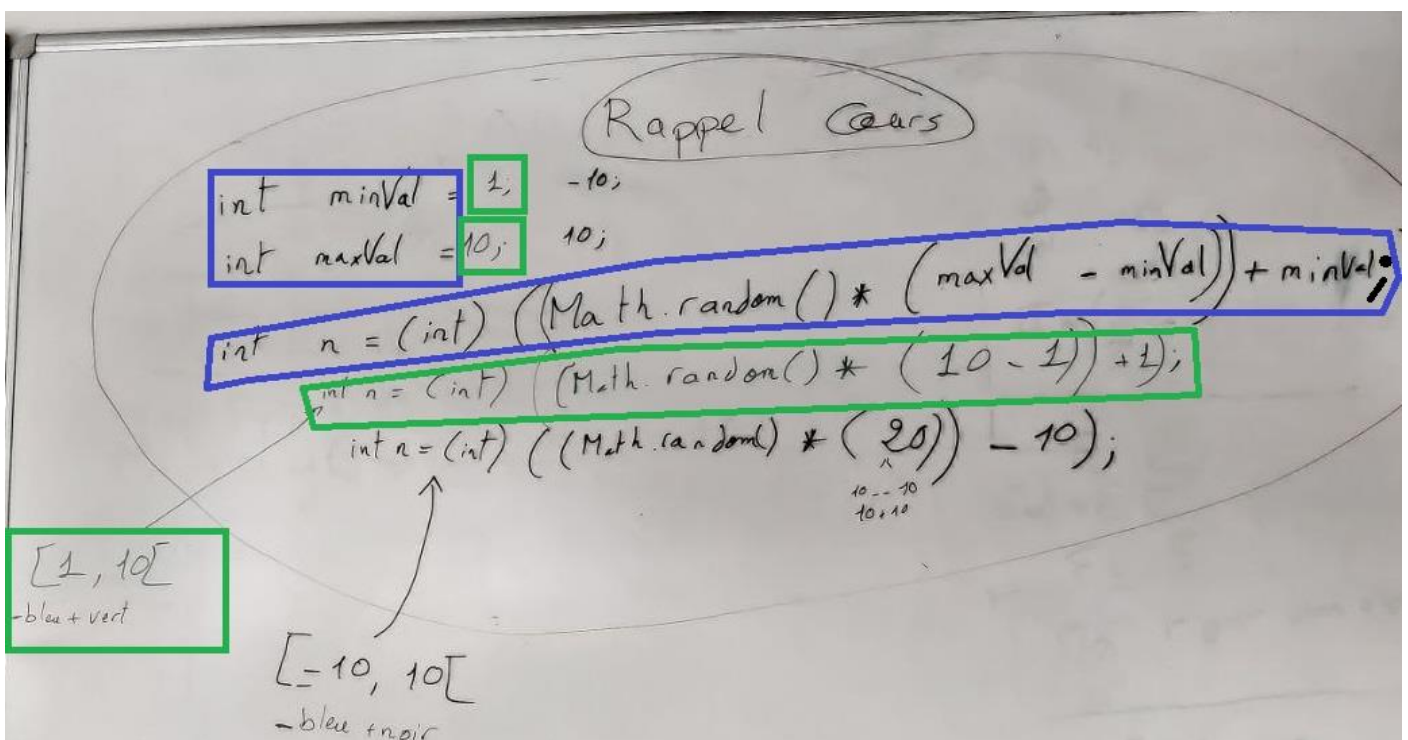 Rappel Cours
int minVal = 1; -10;
int maxVal = 10; 10;
int n = (int) ((Math.random() * (maxVal - minVal)) + minVal;
int n = (int) ((Math.random() * (10 - 1)) + 1);
int n = (int) ((Math.random() * (20)) - 10);
10 -- 10
10+10
[1, 10[
-bleu + vert
[-10, 10[
-bleu + noir